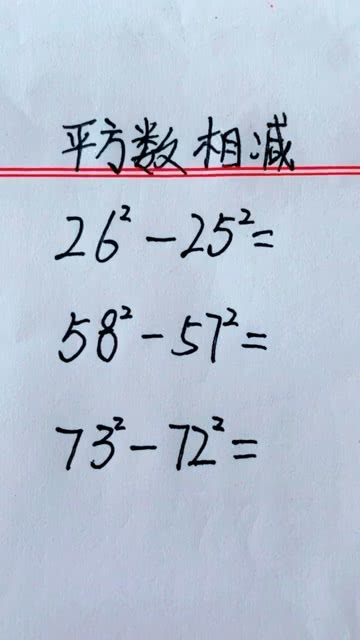 平方数相减
26²-25²=
58²-57²=
73²-72²=